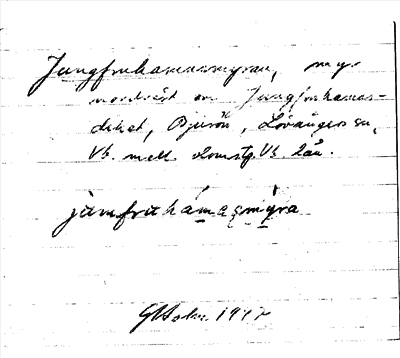 Jungfruhamnsmyran, myr
nordväst om Jungfruhamns-
diket, Bjurön, Lövångers sn,
Vb. mell. domstg. Vb. län.
jùmfruhámasmỳra
GHolm. 1947